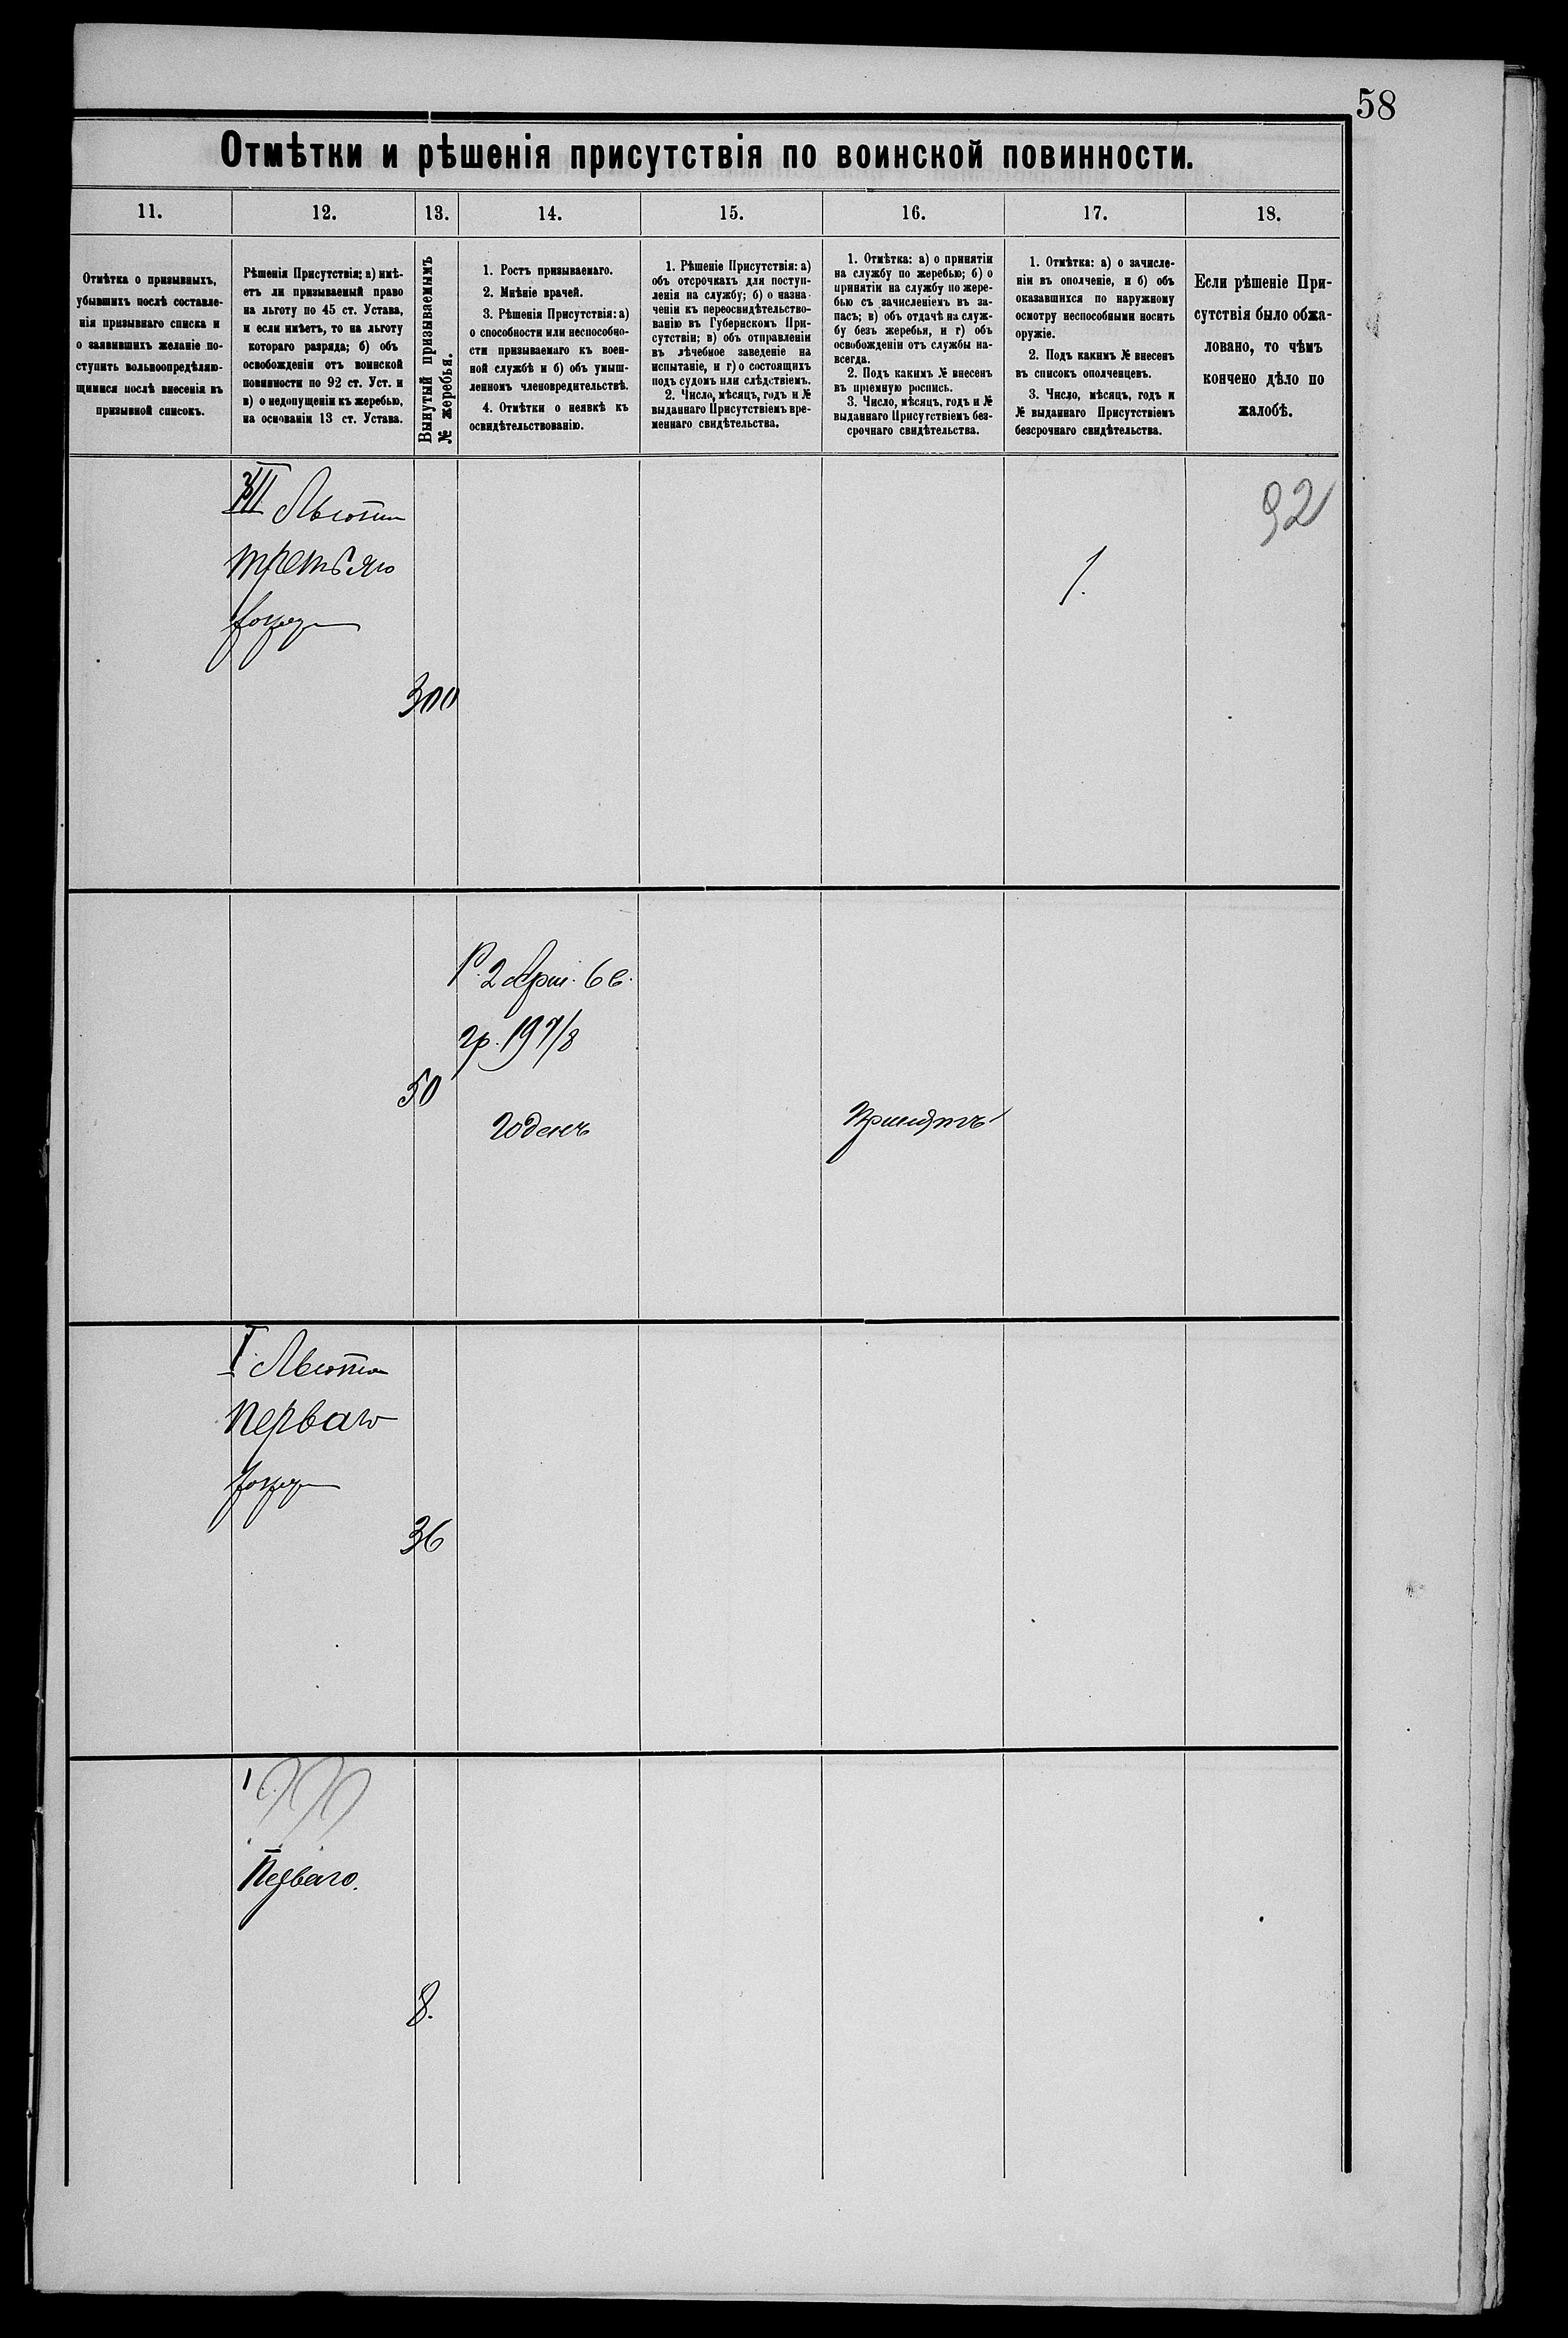 58
Отмѣтки и рѣшенія присутствія по воинской повинности.
11. 12. 13. 14. 15. 16. 17. 18.
Отмѣтка о призывныхъ,
убывшихъ послѣ составле-
нія призывнаго списка и
о заявившихъ желаніе по-
ступить вольноопредѣляю-
щимися послѣ внесенія въ
призывной списокъ.
Рѣшенія Присутствія: а) имѣ-
етъ ли призываемый право
на льготу по 45 ст. Устава,
и если имѣетъ, то на льготу
котораго разряда; б) объ
освобожденіи отъ воинской
повинности по 92 ст. Уст. и
в) о недопущеніи къ жеребью,
на основаніи 13 ст. Устава.
Вынутый призываемымъ
№ жеребья.
1. Ростъ призываемаго.
2. Мнѣніе врачей.
3. Рѣшенія Присутствія: а)
о способности или неспособно-
сти призываемаго къ воен-
ной службѣ и б) объ умыш-
ленномъ членовредительствѣ.
4. Отмѣтки о неявкѣ къ
освидѣтельствованію.
1. Рѣшеніе Присутствія: а)
объ отсрочкахъ для поступ-
ленія на службу; б) о назна-
ченіи къ переосвидѣтельство-
ванію въ Губернскомъ При-
сутствіи; в) объ отправленіи
въ лѣчебное заведеніе на
испытаніе, и г) о состоящихъ
подъ судомъ или слѣдствіемъ.
2. Число, мѣсяцъ, годъ и №
выданнаго Присутствіемъ вре-
меннаго свидѣтельства.
1. Отмѣтка: а) о принятіи
на службу по жеребью; б) о
принятіи на службу по жере-
бью съ зачисленіемъ въ за-
пасъ; в) объ отдачѣ на служ-
бу безъ жеребья, и г) объ
освобожденіи отъ службы на-
всегда.
2. Подъ какимъ № внесенъ
въ пріемную роспись.
3. Число, мѣсяцъ, годъ и №
выданнаго Присутствіемъ без-
срочнаго свидѣтельства.
1. Отмѣтка: а) о зачисле-
ніи въ ополченіе, и б) объ
оказавшихся по наружному
осмотру неспособными носить
оружіе.
2. Подъ какимъ № внесенъ
въ списокъ ополченцевъ.
3. Число, мѣсяцъ, годъ и
№ выданнаго Присутствіемъ
безсрочнаго свидѣтельства.
Если рѣшеніе При-
сутствія было обжа-
ловано, то чѣмъ
кончено дѣло по
жалобѣ.
III Льготы
третьяго
разряда
300
1.
92
Р. 2 Арш. 6 в.
гр. 19 7/8
50
Годенъ
Принятъ
I. Льготы
перваго
разряда
36
Перваго.
8.